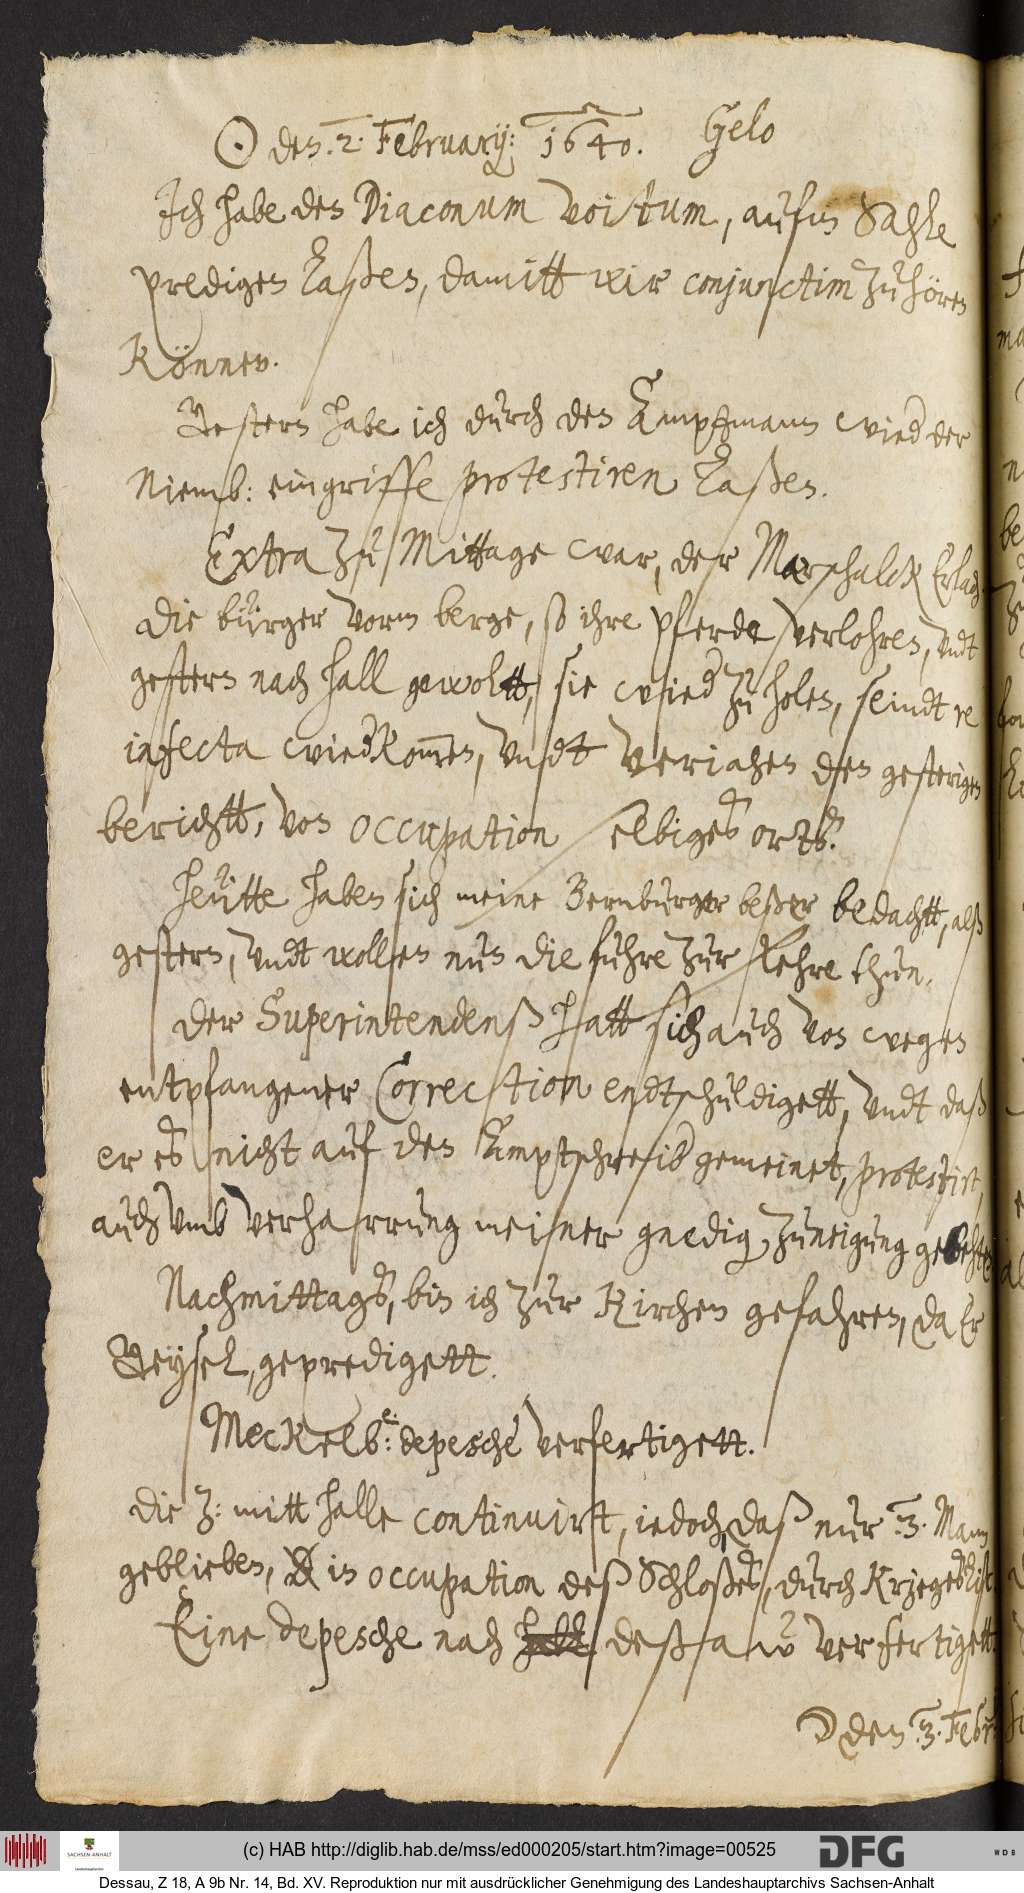 ⊙ den .2. Februarij: 1640. Gelo
Ich habe den Diaconum Voitum, aufm Sahle
predigen laßen, damitt wir conjunctim zuhören
können.
Gestern habe ich durch den Amptmann wieder der
Niemb: eingriffe protestiren laßen.
Extra zu Mittage war, der Marschalck Erlach
die bürger vorm berge, so ihre pferde verlohren, vndt
gestern nach Hall gewoltt, sie wieder zu holen, seindt re
infecta wiederkommen, vndt verjahen den gesterigen
berichtt, von occupation selbiges orts.
Heütte haben sich meine Bernburger beßer bedachtt, alß
gestern, vndt wollen nun die fuhre zur lehre thun.
der Superintendenß hatt sich auch von wegen
entpfangener Correction endtschuldigett, vndt daß
er es nicht auf den Amptschreiber gemeinet, protestirt,
auch vmb verharrung meiner gnedig. zuneigung gebehten
Nachmittags, bin ich zur Kirchen gefahren, da Er
Reysel, gepredigett.
Meckelb:e: depesche verfertigett.
die Z: mitt Halle continuirt, iedoch, daß nur .3. Mann
geblieben, in occupation deß Schloßes, durch Kriegeslist.
Eine depesche nach deßaw verfertigett.
☽ den .3. Febr:
(c) HAB http://diglib.hab.de/mss/ed000205/start.htm?image=00525
SACHSEN-ANHALT
DFG
WDB
Dessau, Z 18, A 9b Nr. 14, Bd. XV. Reproduktion nur mit ausdrücklicher Genehmigung des Landeshauptarchivs Sachsen-Anhalt